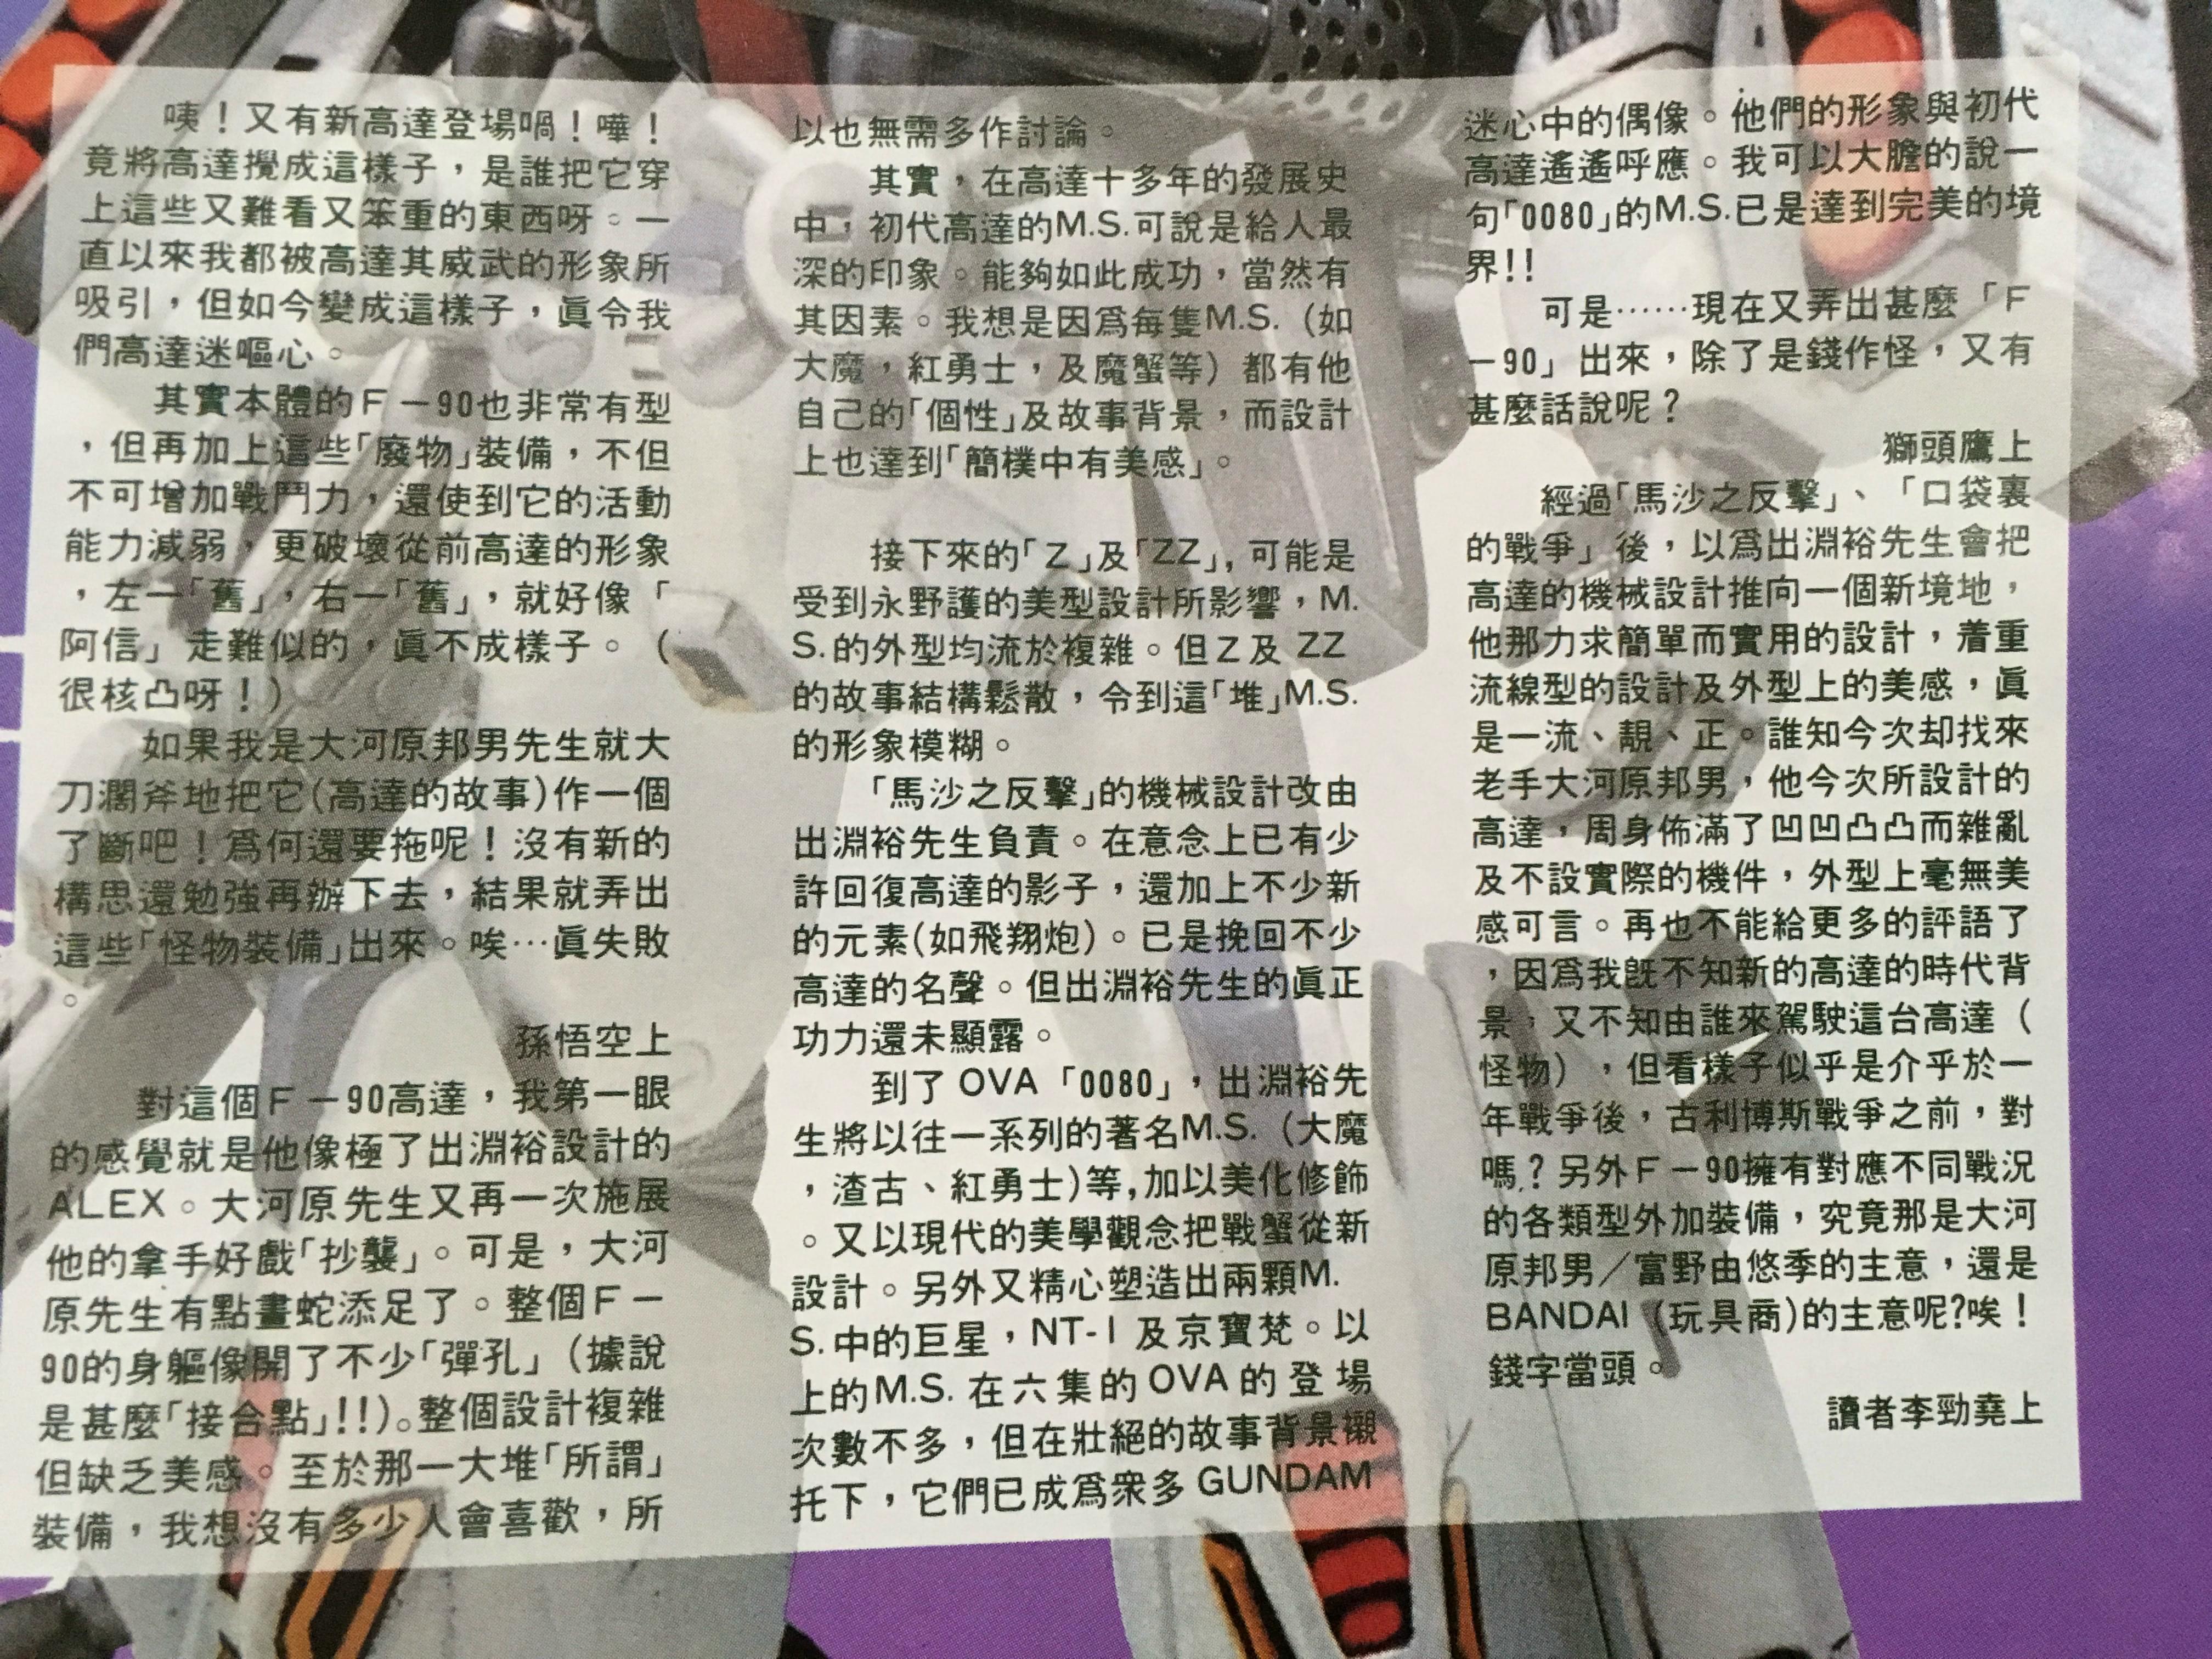 咦！又有新高達登場喎！嘩！
竟將高達攪成這樣子，是誰把它穿
上這些又難看又笨重的東西呀。一
直以來我都被高達其威武的形象所
吸引，但如今變成這樣子，眞令我
們高達迷嘔心。
其實本體的Ｆ－90也非常有型
，但再加上這些「廢物」裝備，不但
不可增加戰鬥力，還使到它的活動
能力減弱，更破壞從前高達的形象
，左一「舊」，右一「舊」，就好像「
阿信」走難似的，眞不成樣子。（
很核凸呀！）
如果我是大河原邦男先生就大
刀濶斧地把它(高達的故事)作一個
了斷吧！爲何還要拖呢！沒有新的
構思還勉強再辦下去，結果就弄出
這些「怪物裝備」出來。唉…眞失敗
。
孫悟空上
對這個Ｆ－90高達，我第一眼
的感覺就是他像極了出淵裕設計的
ALEX。大河原先生又再一次施展
他的拿手好戲「抄襲」。可是，大河
原先生有點畫蛇添足了。整個Ｆ－
90的身軀像開了不少「彈孔」（據說
是甚麼「接合點」!!)。整個設計複雜
但缺乏美感。至於那一大堆「所謂」
裝備，我想沒有多少人會喜歡，所
以也無需多作討論。
其實，在高達十多年的發展史
中，初代高達的M.S.可說是給人最
深的印象。能夠如此成功，當然有
其因素。我想是因爲每隻M.S.（如
大魔，紅勇士，及魔蟹等）都有他
自己的「個性」及故事背景，而設計
上也達到「簡樸中有美感」。
接下來的「Z」及「ZZ」，可能是
受到永野護的美型設計所影響，M.
S.的外型均流於複雜。但Z及 ZZ
的故事結構鬆散，令到這「堆」M.S.
的形象模糊。
「馬沙之反擊」的機械設計改由
出淵裕先生負責。在意念上已有少
許回復高達的影子，還加上不少新
的元素(如飛翔炮)。已是挽回不少
高達的名聲。但出淵裕先生的眞正
功力還未顯露。
到了 OVA「0080」，出淵裕先
生將以往一系列的著名M.S.（大魔
，渣古、紅勇士)等，加以美化修飾
。又以現代的美學觀念把戰蟹從新
設計。另外又精心塑造出兩顆M.
S.中的巨星，NT-1 及京寶梵。以
上的M.S. 在六集的 OVA 的登場
次數不多，但在壯絕的故事背景襯
托下，它們已成爲衆多 GUNDAM
迷心中的偶像。他們的形象與初代
高達遙遙呼應。我可以大膽的說一
句「0080」的M.S.已是達到完美的境
界!!
可是……現在又弄出甚麼「Ｆ
－90」出來，除了是錢作怪，又有
甚麼話說呢？
獅頭鷹上
經過「馬沙之反擊」、「口袋裏
的戰爭」後，以爲出淵裕先生會把
高達的機械設計推向一個新境地，
他那力求簡單而實用的設計，着重
流線型的設計及外型上的美感，眞
是一流、靚、正。誰知今次却找來
老手大河原邦男，他今次所設計的
高達，周身佈滿了凹凹凸凸而雜亂
及不設實際的機件，外型上毫無美
感可言。再也不能給更多的評語了
，因爲我旣不知新的高達的時代背
景，又不知由誰來駕駛這台高達（
怪物），但看樣子似乎是介乎於一
年戰爭後，古利博斯戰爭之前，對
嗎？另外Ｆ－90擁有對應不同戰況
的各類型外加裝備，究竟那是大河
原邦男／富野由悠季的主意，還是
BANDAI（玩具商)的主意呢?唉！
錢字當頭。
讀者李勁堯上